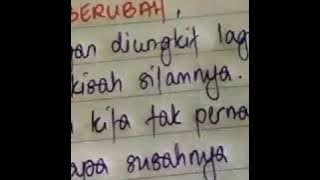 BERUBAH.
an diungkit lag
kisah silamnya.
kita tak perna
apa susahnya